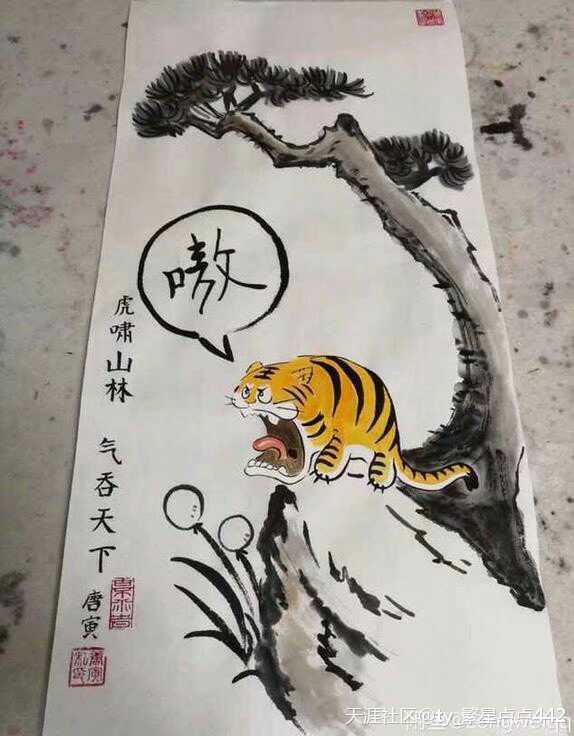 嗷
虎啸山林 气吞天下
唐寅
天涯社区@ty_繁星点点442